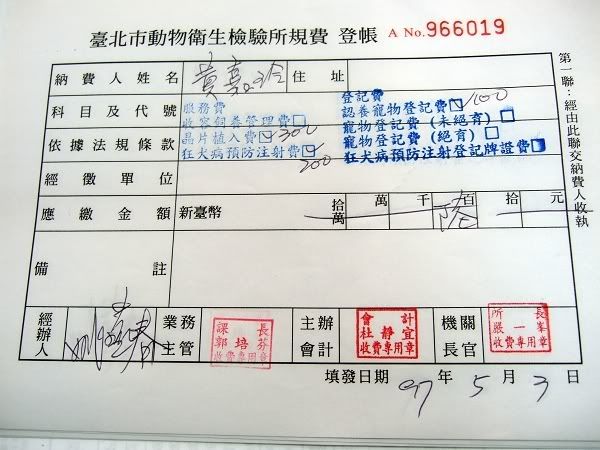 臺北市動物衛生檢驗所規費 登帳 A No.966019
納費人姓名 黃 玲 住址
科目及代號
服務費
收容飼養管理費
晶片植入費 300
狂犬病預防注射費 200
登記費
認養寵物登記費 100
寵物登記費(未絕育)
寵物登記費(絕育)
狂犬病預防注射登記牌證費
依據法規條款
經徵單位
應繳金額 新臺幣 拾萬 萬 千 陸 百 拾 元
備註
經辦人
業務主管 課長 郭培芬 收費專用章
主辦會計 會計 杜靜宜 收費專用章
機關長官 所長 嚴一峯 收費專用章
填發日期 97 年 5 月 3 日
第一聯:經由此聯交納費人收執